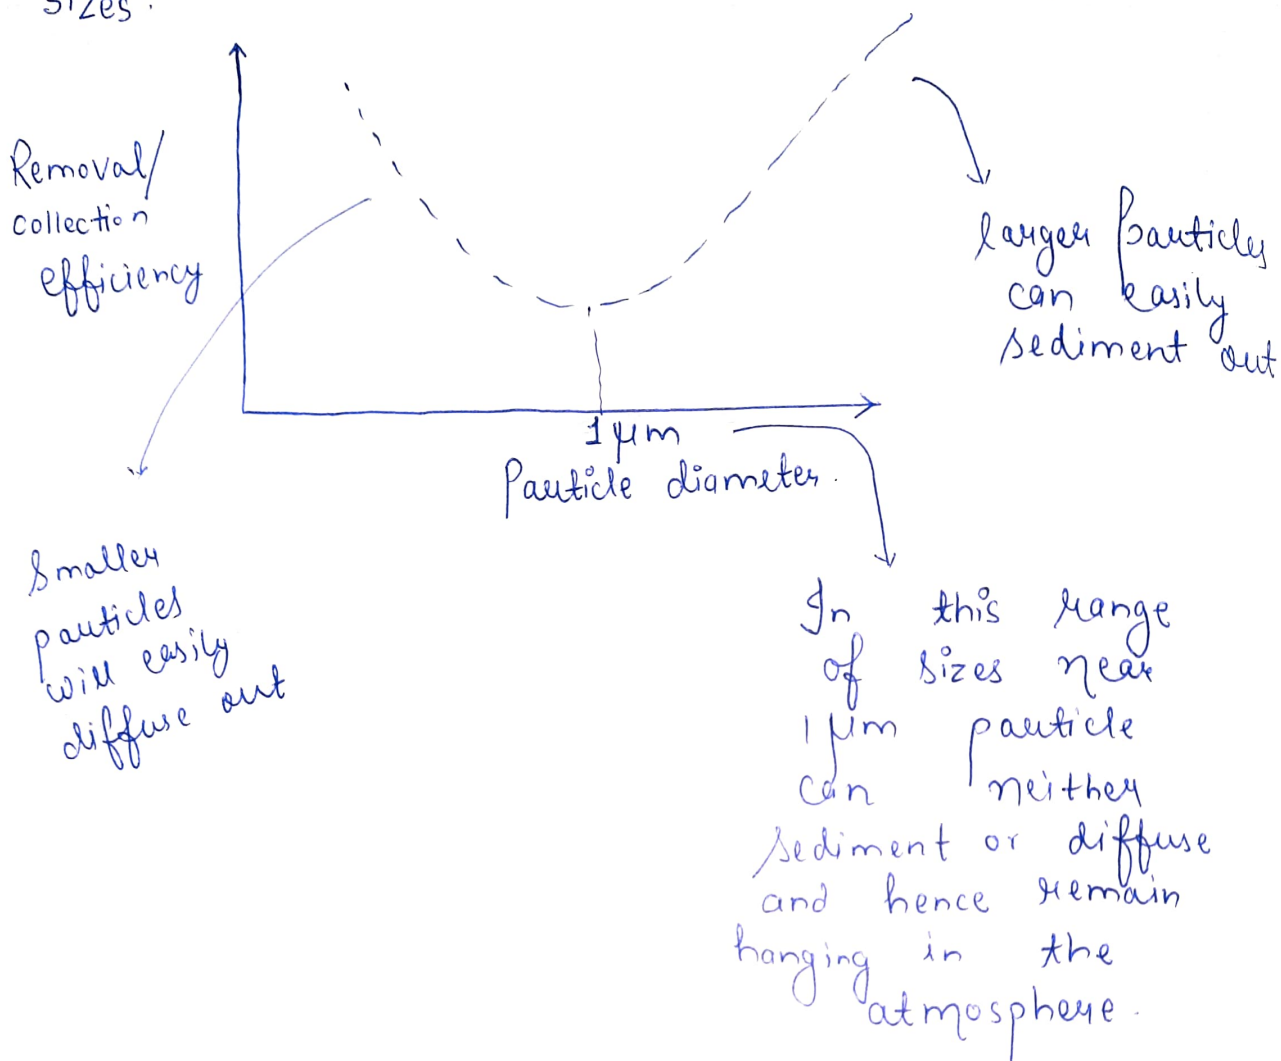 sizes.
Removal/
collection
efficiency
larger particles
can easily
sediment out
1 μm
Particle diameter.
Smaller
particles
will easily
diffuse out
In this range
of sizes near
1 μm particle
can neither
sediment or diffuse
and hence remain
hanging in the
atmosphere.